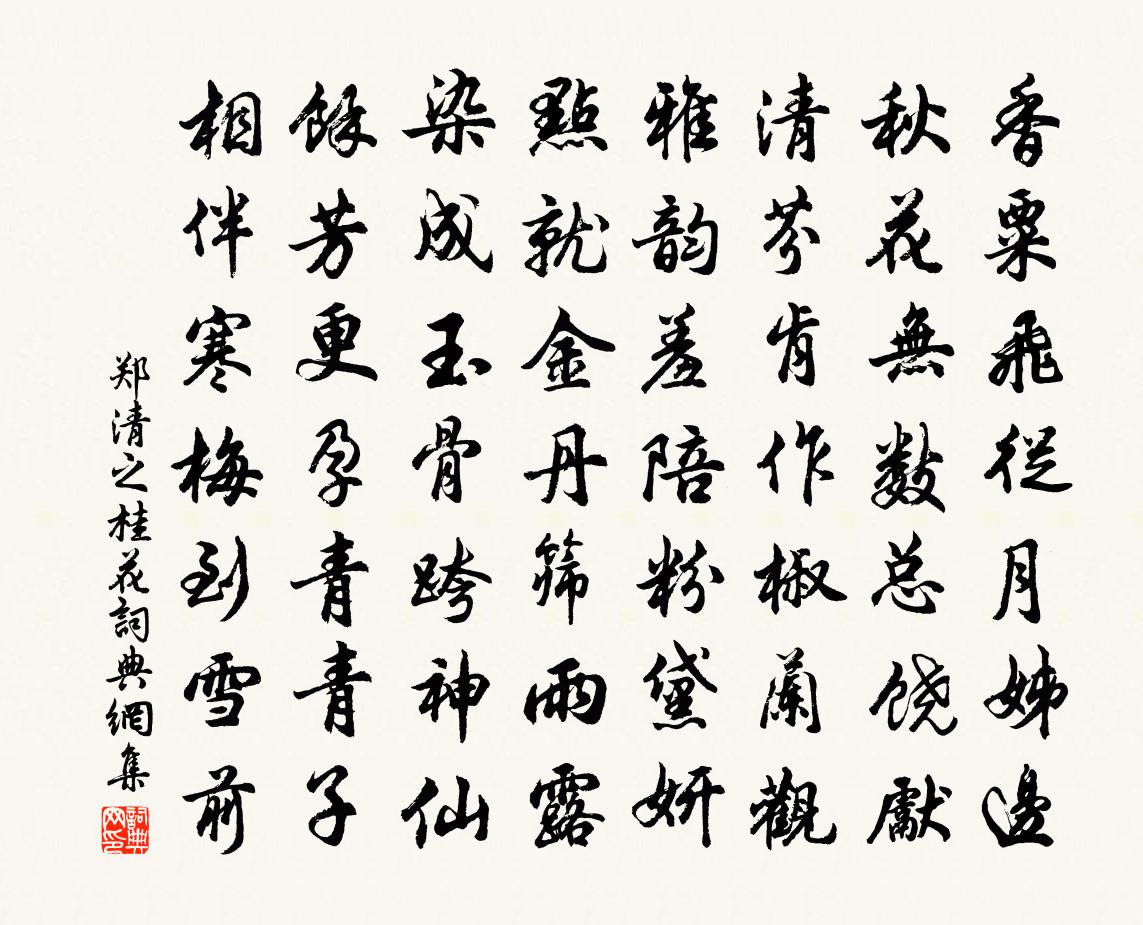 香粟飛從月姊邊
秋花無数总饶獻
清芬肯作椒蘭觀
雅韵羞陪粉黛妍
點就金丹筛雨露
染成玉骨跨神仙
餘芳更孕青青子
相伴寒梅到雪前
郑清之桂花詞典網集
詞典网印